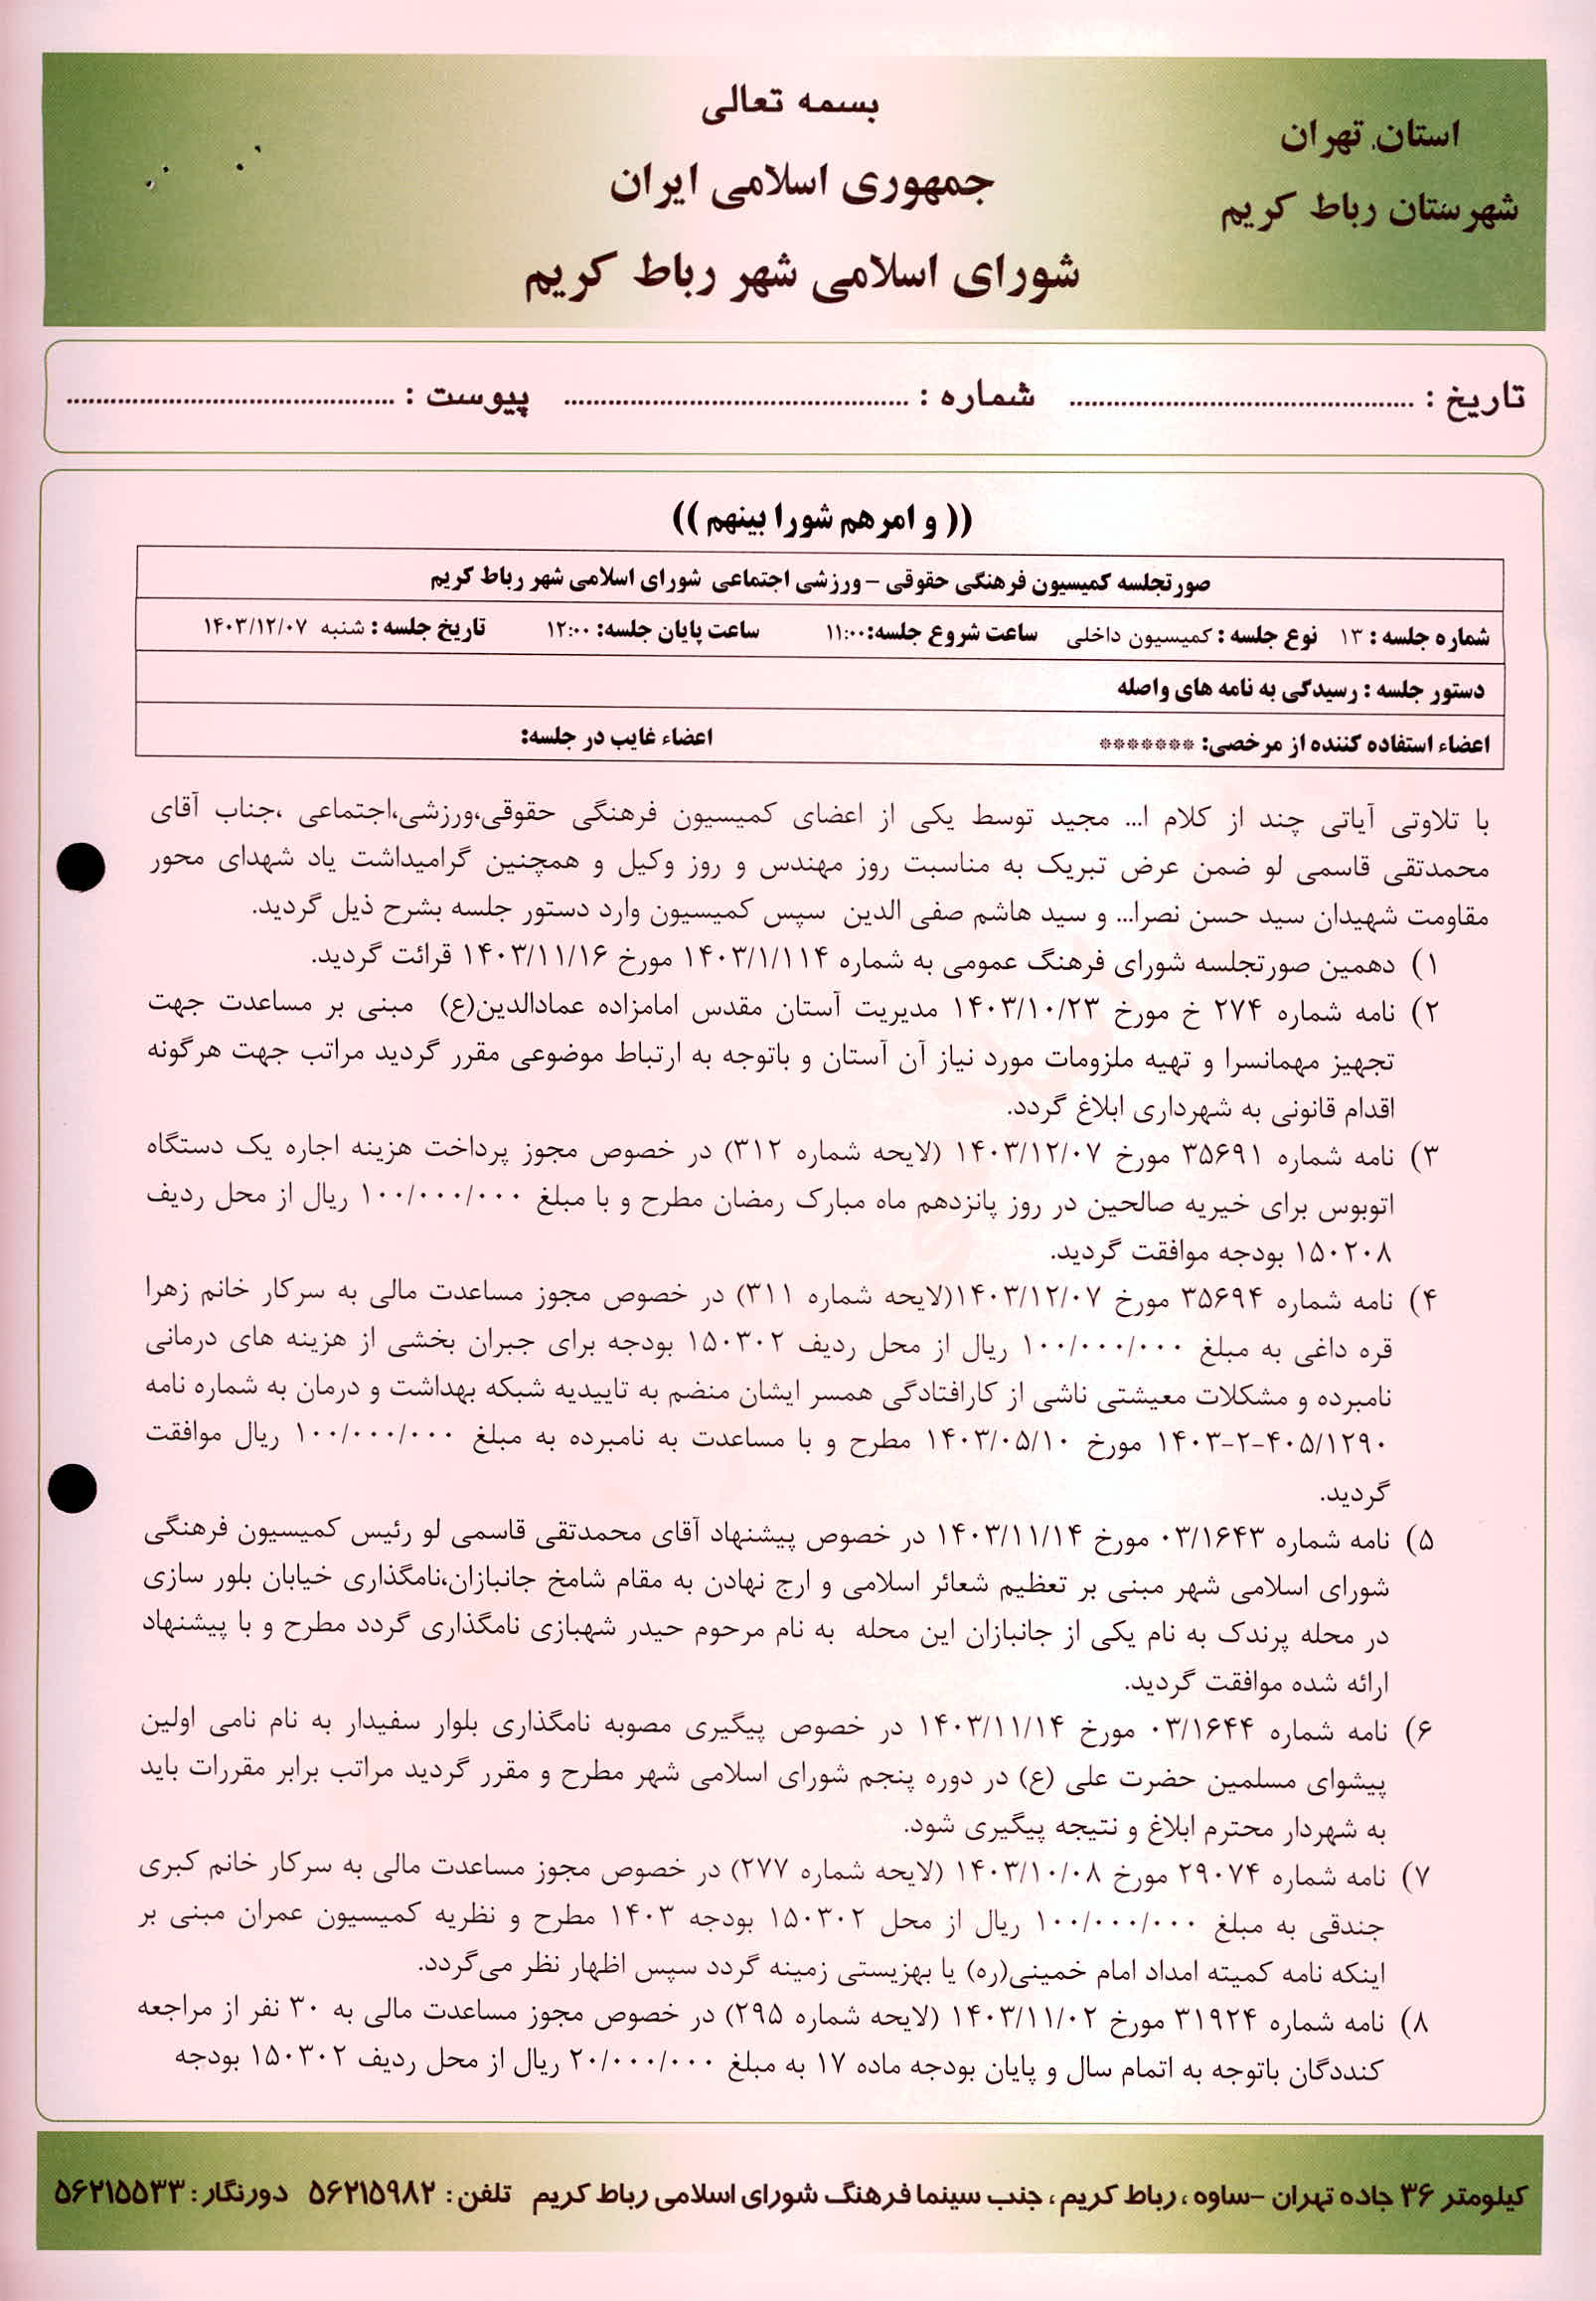 بسمه تعالی
جمهوری اسلامی ایران
شورای اسلامی شهر رباط کریم
استان تهران
شهرستان رباط کریم
تاریخ : ............................................... شماره : ............................................... پیوست : ...............................................
(( و امرهم شورا بینهم ))
صورتجلسه کمیسیون فرهنگی حقوقی – ورزشی اجتماعی شورای اسلامی شهر رباط کریم
شماره جلسه : ۱۳ نوع جلسه : کمیسیون داخلی ساعت شروع جلسه:۱۱:۰۰ ساعت پایان جلسه: ۱۲:۰۰ تاریخ جلسه : شنبه ۱۴۰۳/۱۲/۰۷
دستور جلسه : رسیدگی به نامه های واصله
اعضاء استفاده کننده از مرخصی: ******* اعضاء غایب در جلسه:
با تلاوتی آیاتی چند از کلام ا... مجید توسط یکی از اعضای کمیسیون فرهنگی حقوقی،ورزشی،اجتماعی ،جناب آقای
محمدتقی قاسمی لو ضمن عرض تبریک به مناسبت روز مهندس و روز وکیل و همچنین گرامیداشت یاد شهدای محور
مقاومت شهیدان سید حسن نصرا... و سید هاشم صفی الدین سپس کمیسیون وارد دستور جلسه بشرح ذیل گردید.
۱) دهمین صورتجلسه شورای فرهنگ عمومی به شماره ۱۴۰۳/۱/۱۱۴ مورخ ۱۴۰۳/۱۱/۱۶ قرائت گردید.
۲) نامه شماره ۲۷۴ خ مورخ ۱۴۰۳/۱۰/۲۳ مدیریت آستان مقدس امامزاده عمادالدین(ع) مبنی بر مساعدت جهت
تجهیز مهمانسرا و تهیه ملزومات مورد نیاز آن آستان و باتوجه به ارتباط موضوعی مقرر گردید مراتب جهت هرگونه
اقدام قانونی به شهرداری ابلاغ گردد.
۳) نامه شماره ۳۵۶۹۱ مورخ ۱۴۰۳/۱۲/۰۷ (لایحه شماره ۳۱۲) در خصوص مجوز پرداخت هزینه اجاره یک دستگاه
اتوبوس برای خیریه صالحین در روز پانزدهم ماه مبارک رمضان مطرح و با مبلغ ۱۰۰/۰۰۰/۰۰۰ ریال از محل ردیف
۱۵۰۲۰۸ بودجه موافقت گردید.
۴) نامه شماره ۳۵۶۹۴ مورخ ۱۴۰۳/۱۲/۰۷(لایحه شماره ۳۱۱) در خصوص مجوز مساعدت مالی به سرکار خانم زهرا
قره داغی به مبلغ ۱۰۰/۰۰۰/۰۰۰ ریال از محل ردیف ۱۵۰۳۰۲ بودجه برای جبران بخشی از هزینه های درمانی
نامبرده و مشکلات معیشتی ناشی از کارافتادگی همسر ایشان منضم به تاییدیه شبکه بهداشت و درمان به شماره نامه
۴۰۵/۱۲۹۰-۲-۱۴۰۳ مورخ ۱۴۰۳/۰۵/۱۰ مطرح و با مساعدت به نامبرده به مبلغ ۱۰۰/۰۰۰/۰۰۰ ریال موافقت
گردید.
۵) نامه شماره ۰۳/۱۶۴۳ مورخ ۱۴۰۳/۱۱/۱۴ در خصوص پیشنهاد آقای محمدتقی قاسمی لو رئیس کمیسیون فرهنگی
شورای اسلامی شهر مبنی بر تعظیم شعائر اسلامی و ارج نهادن به مقام شامخ جانبازان،نامگذاری خیابان بلور سازی
در محله پرندک به نام یکی از جانبازان این محله به نام مرحوم حیدر شهبازی نامگذاری گردد مطرح و با پیشنهاد
ارائه شده موافقت گردید.
۶) نامه شماره ۰۳/۱۶۴۴ مورخ ۱۴۰۳/۱۱/۱۴ در خصوص پیگیری مصوبه نامگذاری بلوار سفیدار به نام نامی اولین
پیشوای مسلمین حضرت علی (ع) در دوره پنجم شورای اسلامی شهر مطرح و مقرر گردید مراتب برابر مقررات باید
به شهردار محترم ابلاغ و نتیجه پیگیری شود.
۷) نامه شماره ۲۹۰۷۴ مورخ ۱۴۰۳/۱۰/۰۸ (لایحه شماره ۲۷۷) در خصوص مجوز مساعدت مالی به سرکار خانم کبری
جندقی به مبلغ ۱۰۰/۰۰۰/۰۰۰ ریال از محل ۱۵۰۳۰۲ بودجه ۱۴۰۳ مطرح و نظریه کمیسیون عمران مبنی بر
اینکه نامه کمیته امداد امام خمینی(ره) یا بهزیستی زمینه گردد سپس اظهار نظر می‌گردد.
۸) نامه شماره ۳۱۹۲۴ مورخ ۱۴۰۳/۱۱/۰۲ (لایحه شماره ۲۹۵) در خصوص مجوز مساعدت مالی به ۳۰ نفر از مراجعه
کنددگان باتوجه به اتمام سال و پایان بودجه ماده ۱۷ به مبلغ ۲۰/۰۰۰/۰۰۰ ریال از محل ردیف ۱۵۰۳۰۲ بودجه
کیلومتر ۳۶ جاده تهران –ساوه ، رباط کریم ، جنب سینما فرهنگ شورای اسلامی رباط کریم تلفن : ۵۶۲۱۵۹۸۲ دورنگار : ۵۶۲۱۵۵۳۳